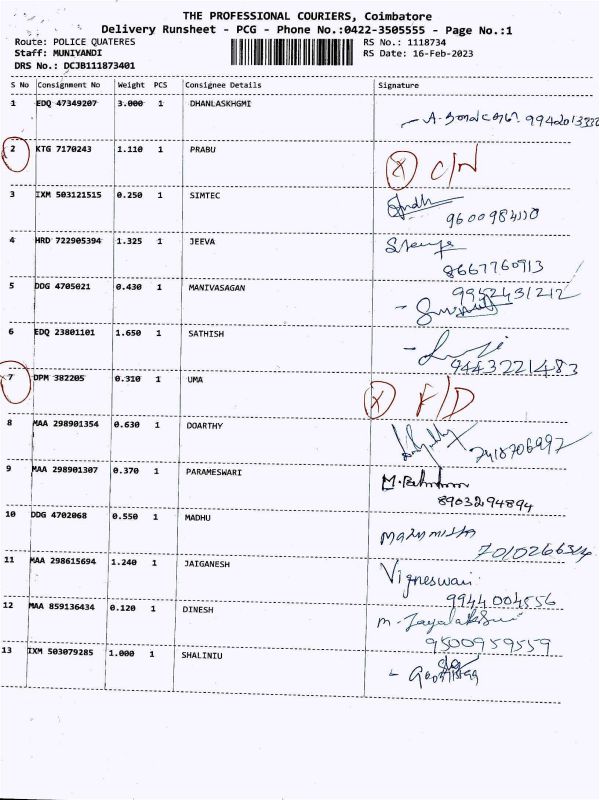 THE PROFESSIONAL COURIERS, Coimbatore
Delivery Runsheet - PCG - Phone No.:0422-3505555 - Page No.:1
Route: POLICE QUATERES RS No.: 1118734
Staff: MUNIYANDI RS Date: 16-Feb-2023
DRS No.: DCJB111873401
S No Consignment No Weight PCS Consignee Details Signature
1 EDQ 47349207 3.000 1 DHANLASKHGMI
2 KTG 7170243 1.110 1 PRABU X C/N
3 IXM 503121515 0.250 1 SIMTEC
9600984110
4 HRD 722905394 1.325 1 JEEVA
8667760913
5 DDG 4705021 0.430 1 MANIVASAGAN 9952431212
6 EDQ 23801101 1.650 1 SATHISH
9443221483
7 DPM 382205 0.310 1 UMA X F/D
8 MAA 298901354 0.630 1 DOARTHY
7418706997
9 MAA 298901307 0.370 1 PARAMESWARI
8903294894
10 DDG 4702068 0.550 1 MADHU
11 MAA 298615694 1.240 1 JAIGANESH Vigneswari
9944004556
12 MAA 859136434 0.120 1 DINESH M. Jayalakshmi
9500959559
13 IXM 503079285 1.000 1 SHALINIU